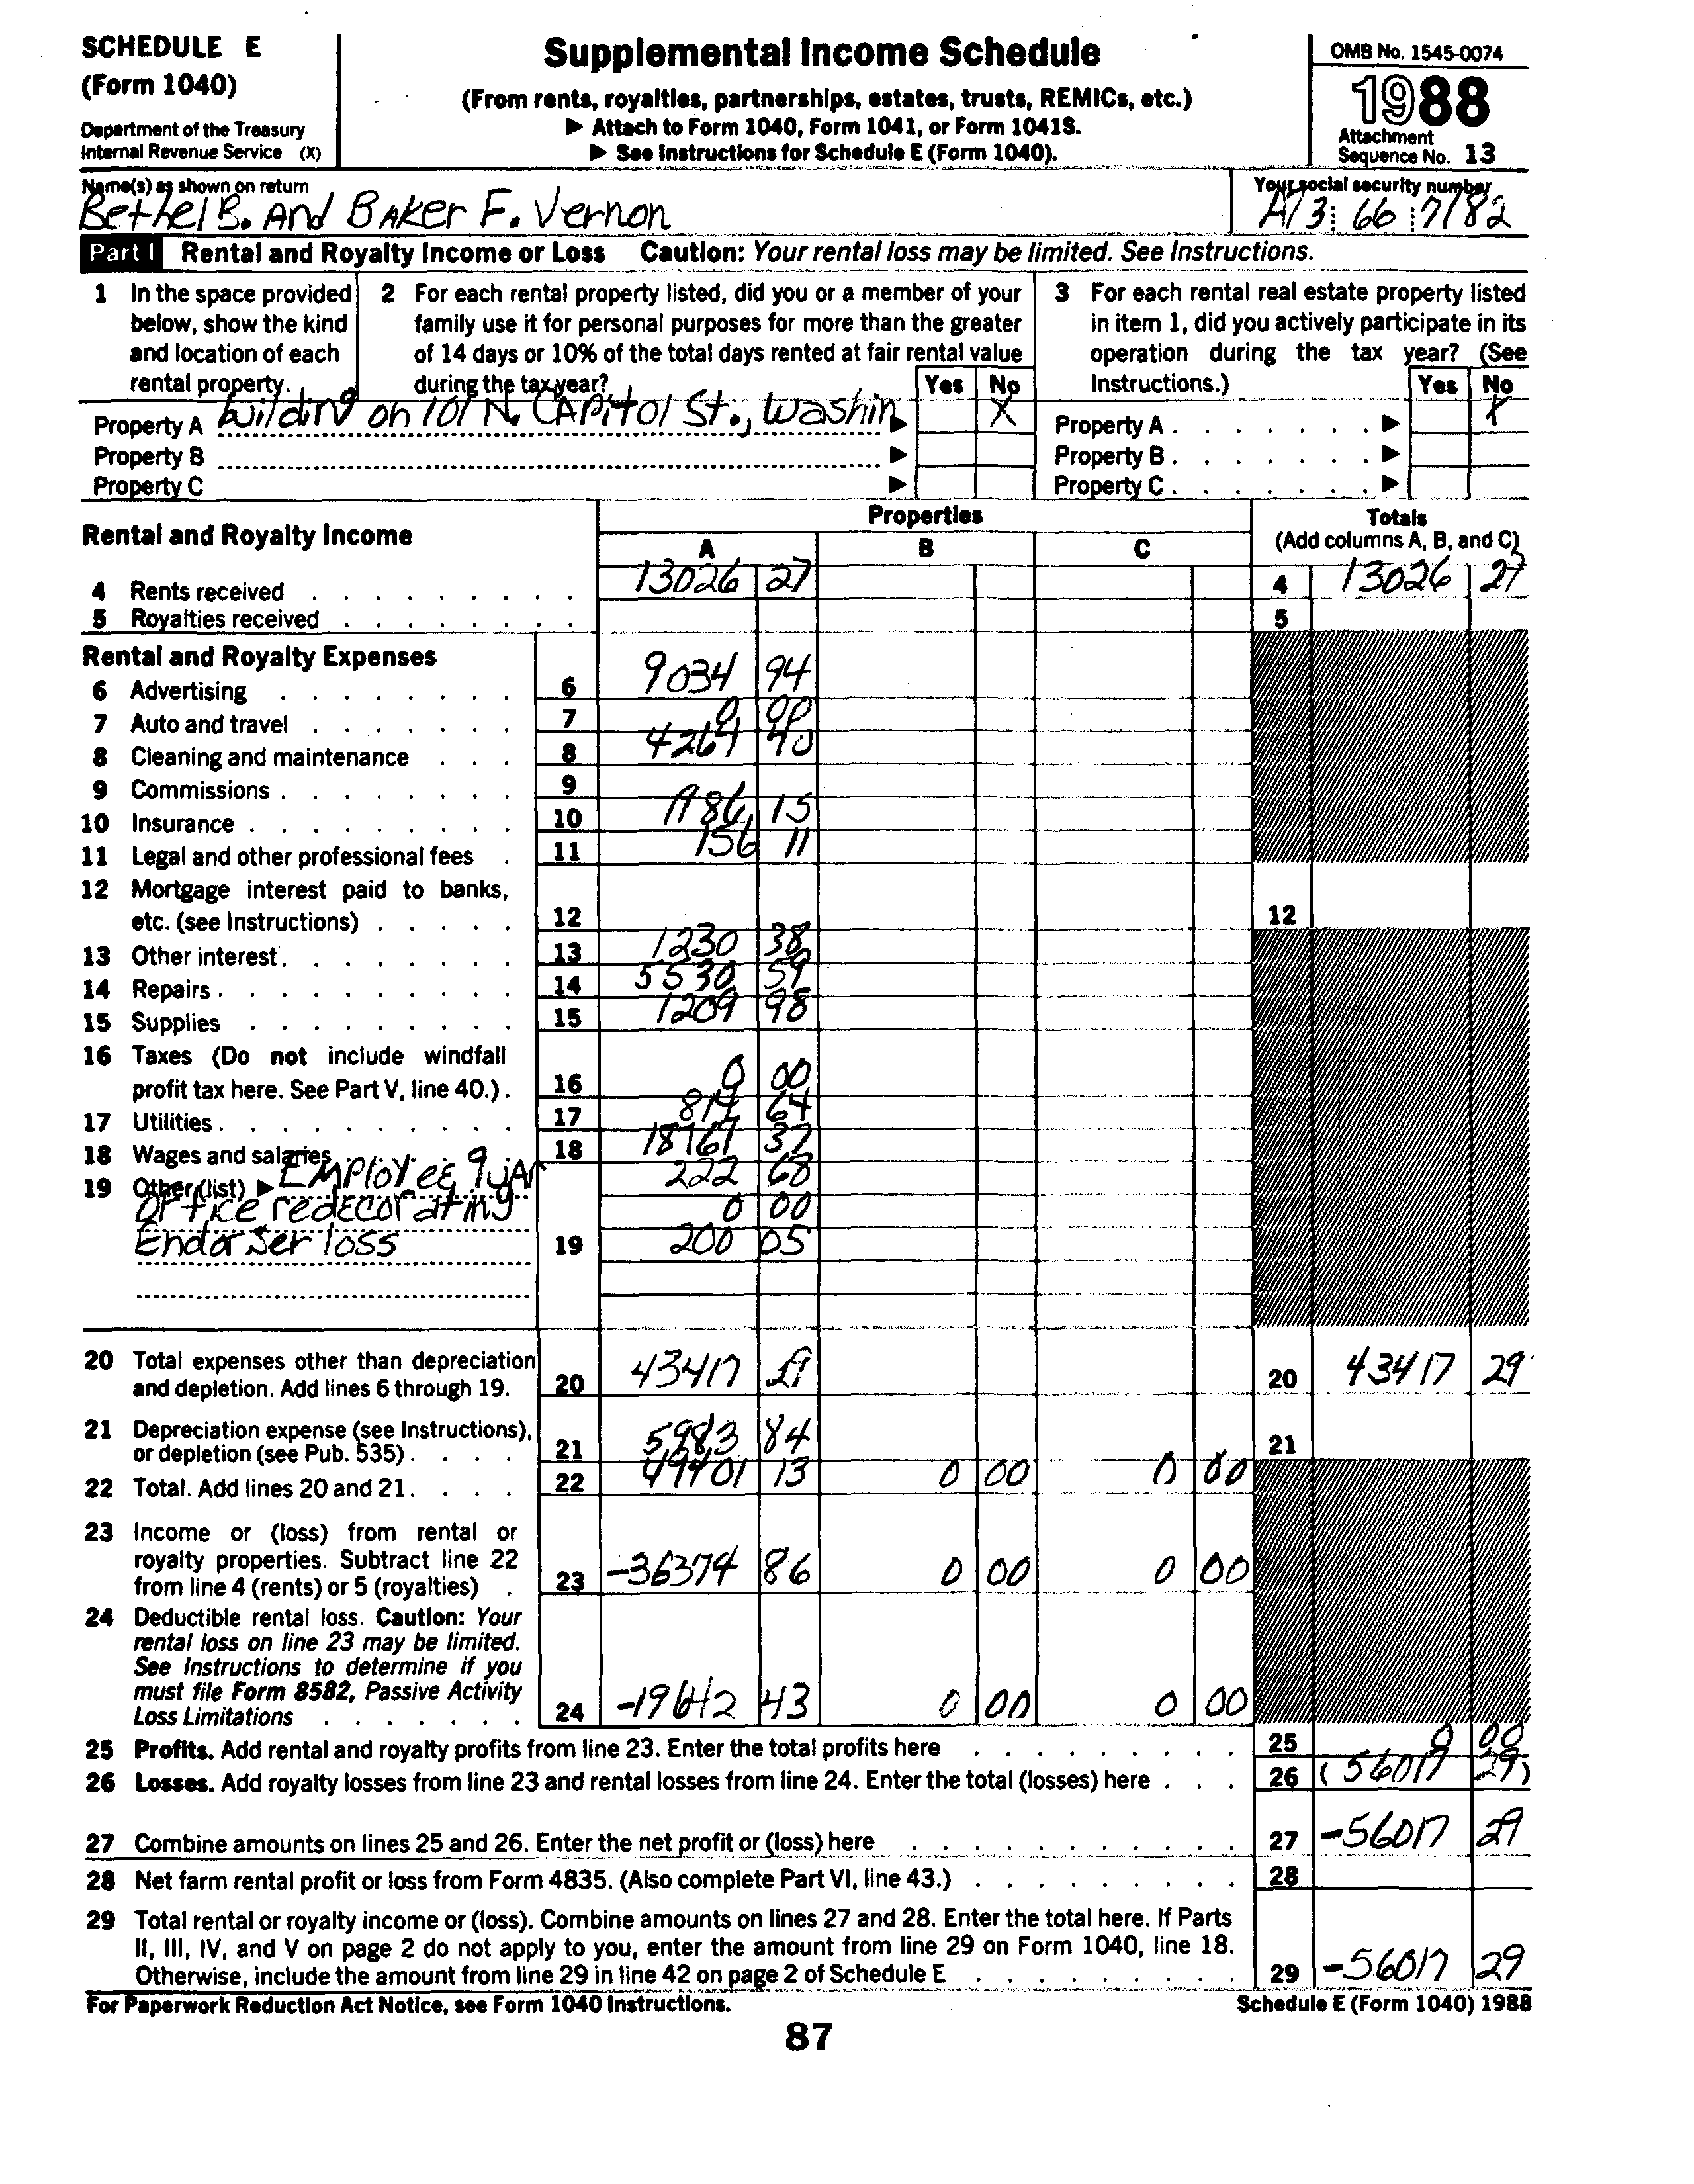 SCHEDULE E
(Form 1040)
Department of the Treasury
Internal Revenue Service (X)
Supplemental Income Schedule
(From rents, royalties, partnerships, estates, trusts, REMICs, etc.)
▶ Attach to Form 1040, Form 1041, or Form 1041S.
▶ See Instructions for Schedule E (Form 1040).
OMB No. 1545-0074
1988
Attachment
Sequence No. 13
Name(s) as shown on return
Bethel B. And BAKer F. Vernon
Your social security number
66 7182
Part I Rental and Royalty Income or Loss Caution: Your rental loss may be limited. See Instructions.
1 In the space provided
below, show the kind
and location of each
rental property.
2 For each rental property listed, did you or a member of your
family use it for personal purposes for more than the greater
of 14 days or 10% of the total days rented at fair rental value
during the tax year? Yes No
3 For each rental real estate property listed
in item 1, did you actively participate in its
operation during the tax year? (See
Instructions.) Yes No
Property A building on 101 N. CAPitol St., Washin ▶ X
Property B ▶
Property C ▶
Property A ▶ X
Property B ▶
Property C ▶
Rental and Royalty Income
Properties
A B C
Totals
(Add columns A, B, and C)
4 Rents received 13026 27 4 13026 27
5 Royalties received 5
Rental and Royalty Expenses
6 Advertising 6 9034 94
7 Auto and travel 7 0 00
8 Cleaning and maintenance 8 40
9 Commissions 9
10 Insurance 10 15
11 Legal and other professional fees 11 156 11
12 Mortgage interest paid to banks,
etc. (see Instructions) 12 12
13 Other interest 13 1230 38
14 Repairs 14 5530 59
15 Supplies 15 1209 98
16 Taxes (Do not include windfall
profit tax here. See Part V, line 40.) 16 0 00
17 Utilities 17 64
18 Wages and salaries 18 37
19 Other (list) ▶ EMPloyee 222 68
Office redecorating 0 00
Endorser loss 19 200 05
20 Total expenses other than depreciation
and depletion. Add lines 6 through 19. 20 43417 29 20 43417 29
21 Depreciation expense (see Instructions),
or depletion (see Pub. 535) 21 5983 84 21
22 Total. Add lines 20 and 21. 22 49401 13 0 00 0 00
23 Income or (loss) from rental or
royalty properties. Subtract line 22
from line 4 (rents) or 5 (royalties) 23 -36374 86 0 00 0 00
24 Deductible rental loss. Caution: Your
rental loss on line 23 may be limited.
See Instructions to determine if you
must file Form 8582, Passive Activity
Loss Limitations 24 -19642 43 0 00 0 00
25 Profits. Add rental and royalty profits from line 23. Enter the total profits here 25 0 00
26 Losses. Add royalty losses from line 23 and rental losses from line 24. Enter the total (losses) here 26 (56017 29)
27 Combine amounts on lines 25 and 26. Enter the net profit or (loss) here 27 -56017 29
28 Net farm rental profit or loss from Form 4835. (Also complete Part VI, line 43.) 28
29 Total rental or royalty income or (loss). Combine amounts on lines 27 and 28. Enter the total here. If Parts
II, III, IV, and V on page 2 do not apply to you, enter the amount from line 29 on Form 1040, line 18.
Otherwise, include the amount from line 29 in line 42 on page 2 of Schedule E 29 -56017 29
For Paperwork Reduction Act Notice, see Form 1040 Instructions.
Schedule E (Form 1040) 1988
87